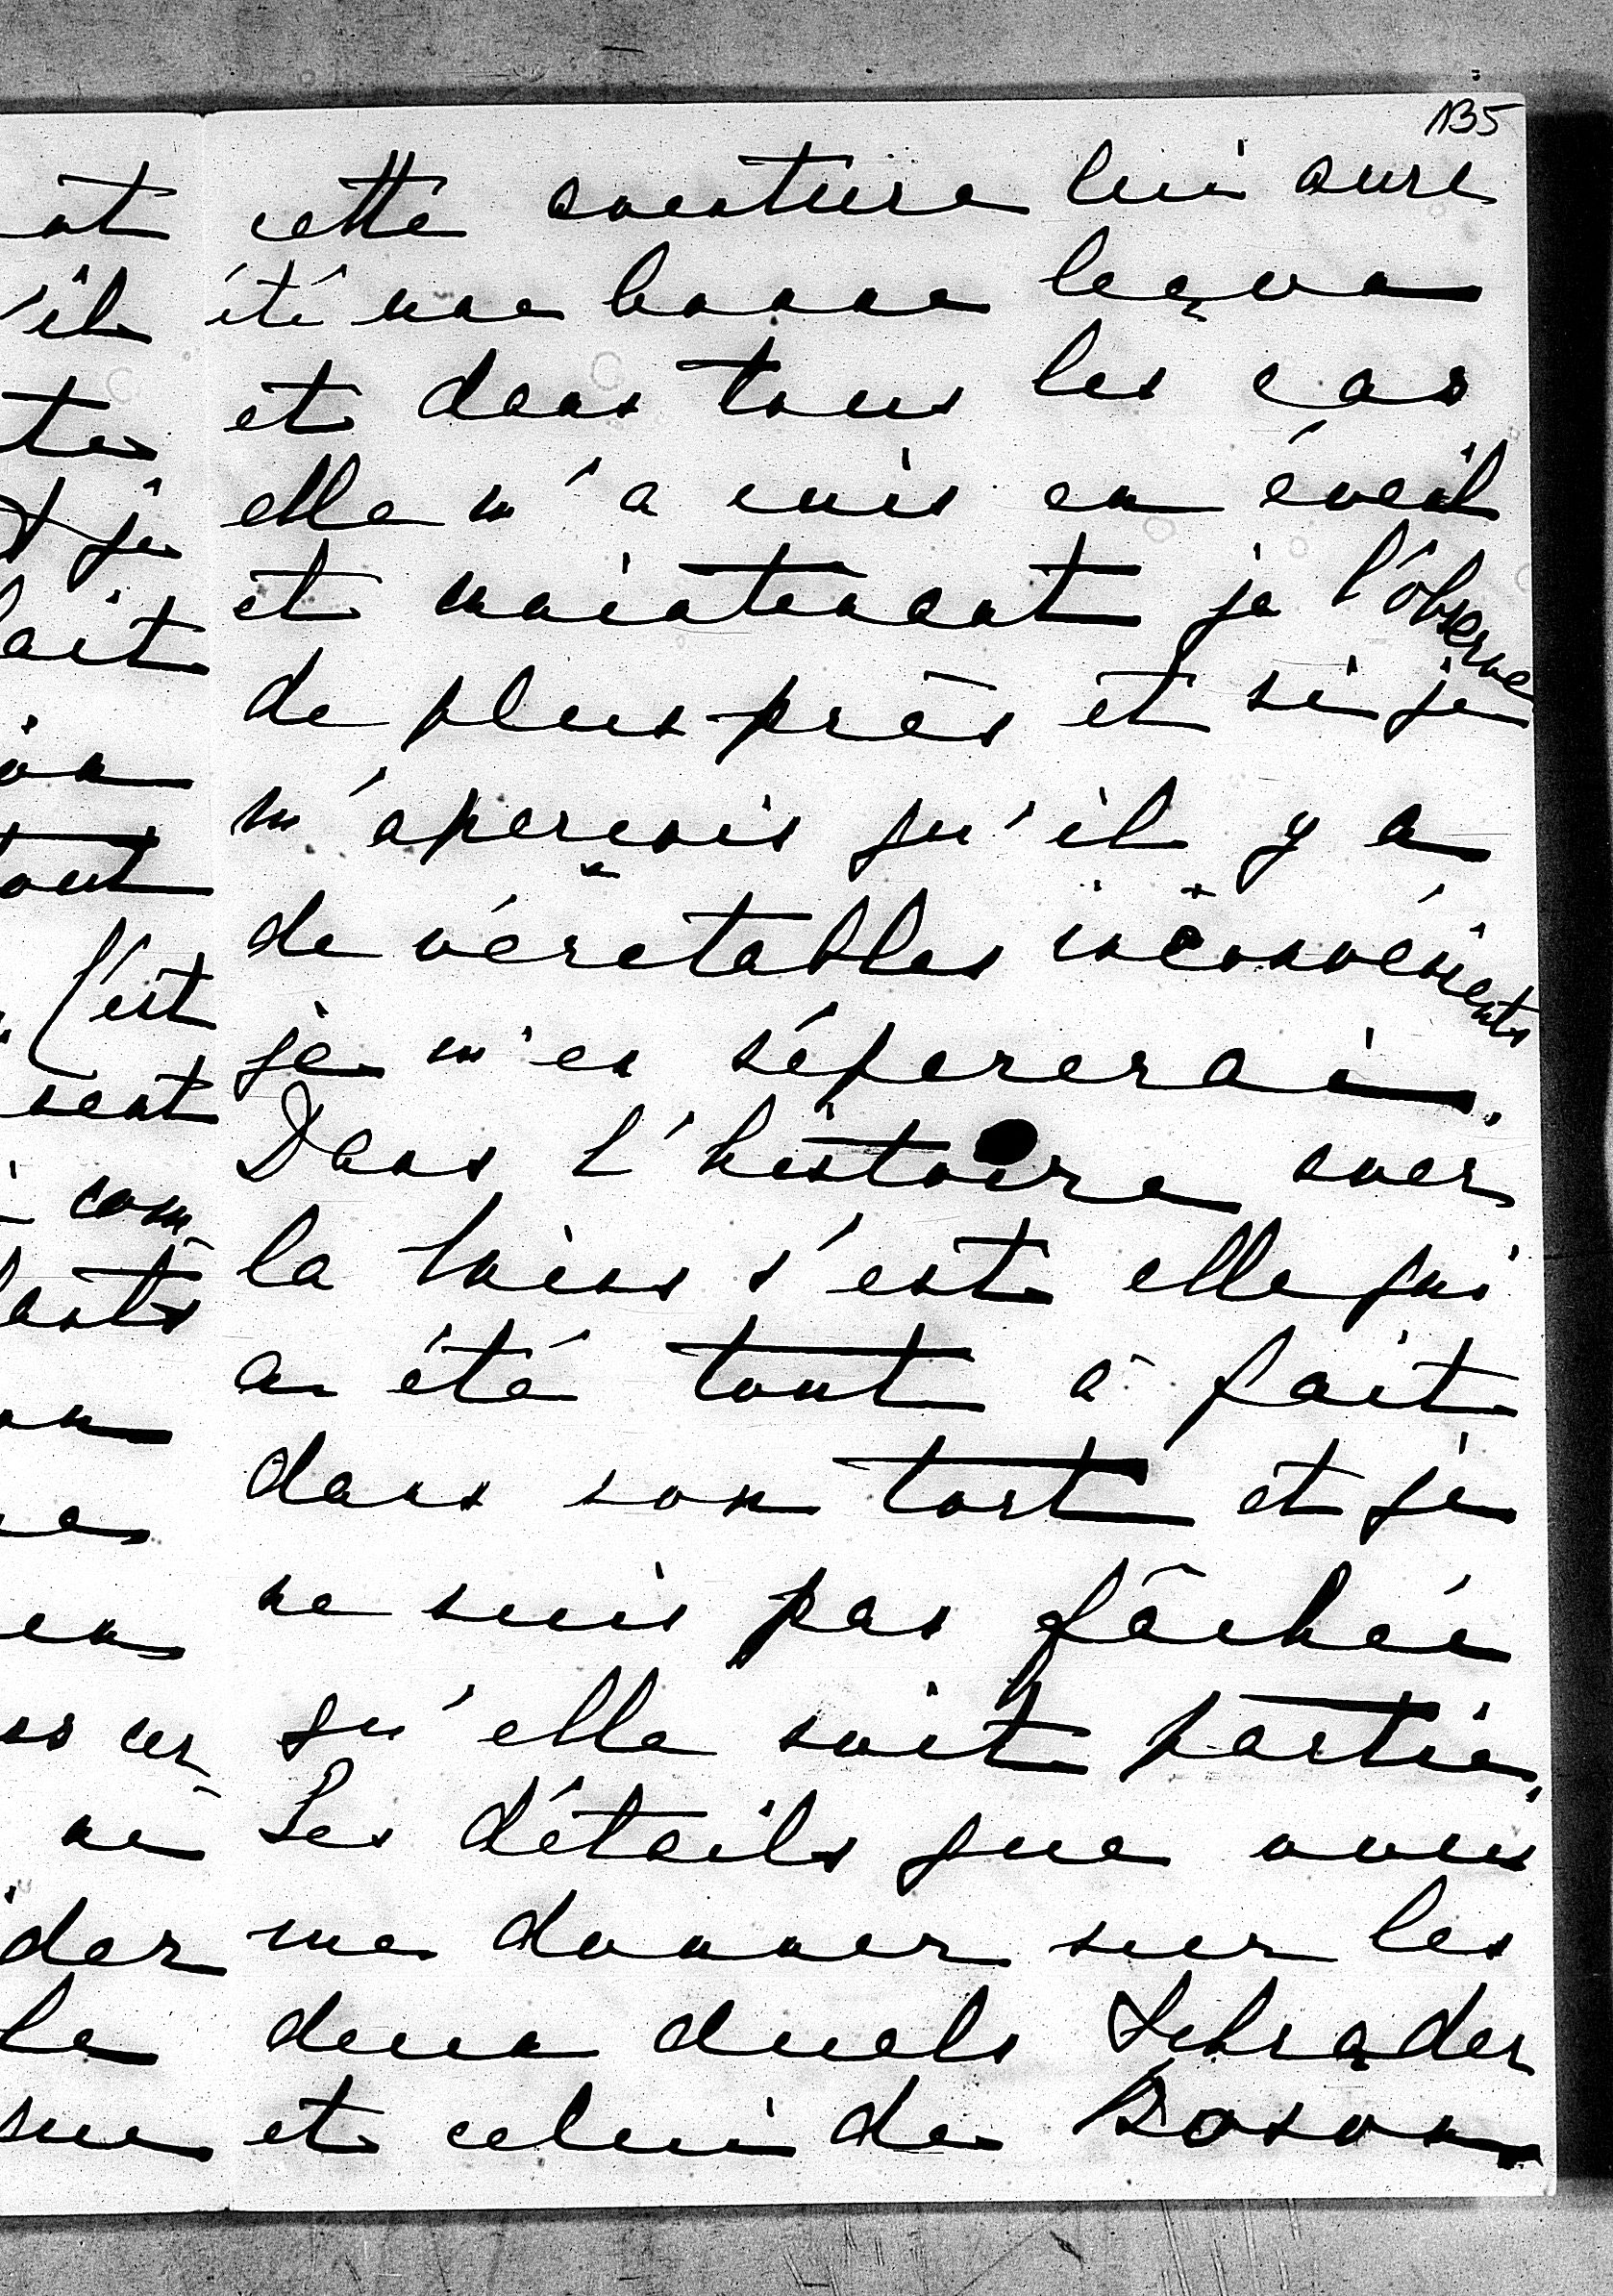 135
cette aventure lui aura
été une bonne leçon
et dans tous les cas
elle m'a mis en éveil
et maintenant je l'observe
de plus près et si je
m'aperçois qu'il y a
de véritables inconvénients
je m'en séparerai.
Dans l'histoire avec
la Miss s'est elle qui
a été tout à fait
dans son tort et je
ne suis pas fâchée
qu'elle soit partie.
Les détails que vous
me donner sur les
deux duels Schrader
et celui de Boson